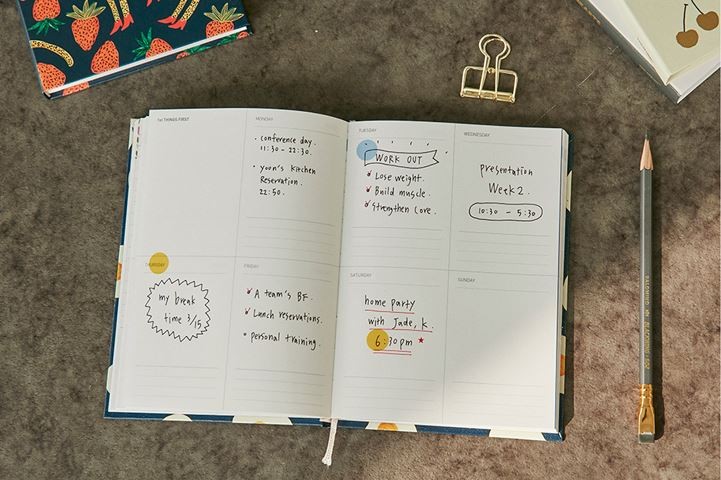 1st THINGS FIRST
MONDAY
· conference day.
11:30 - 22:30.
· yoon's kitchen
Reservation.
22:50.
TUESDAY
WORK OUT
Lose weight.
Build muscle.
Strengthen Core.
WEDNESDAY
presentation
Week 2.
10:30 - 5:30
THURSDAY
my break
time 3/15
FRIDAY
A team's BF.
Lunch reservations.
· personal training.
SATURDAY
home party
with Jade, k.
6:30pm
SUNDAY
PALOMINO
BLACKWING 602